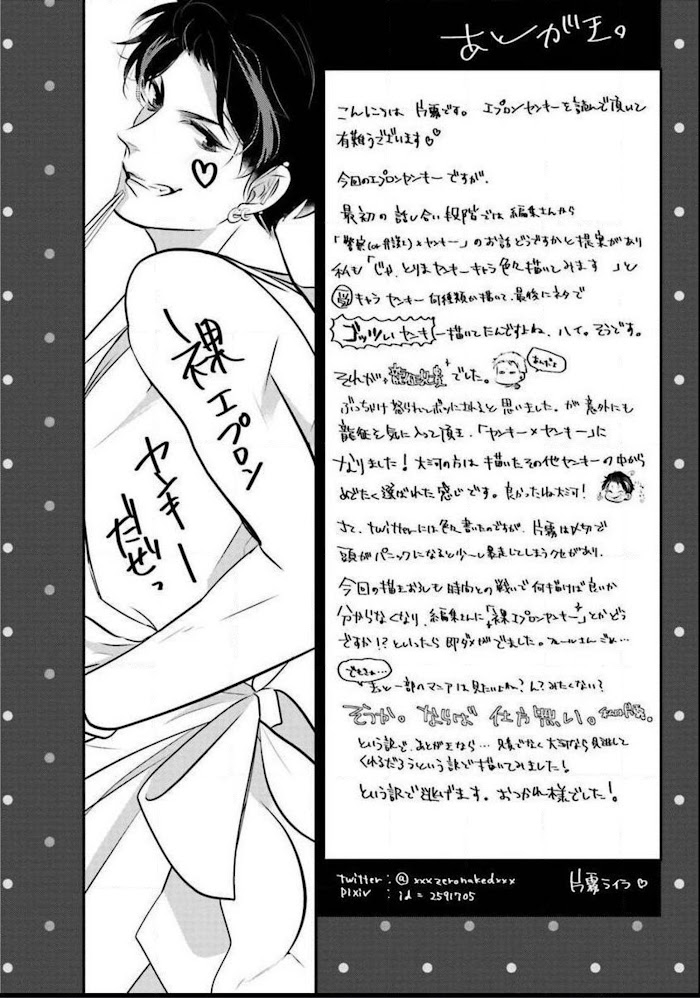 あとがき。
こんにちは 片霧です。 エプロンヤンキーを読んで頂いて
有難うございます♡♡
今回のエプロンヤンキーですが、
最初の話し合い段階では編集さんから
「警察(or 弁護士)×ヤンキー」のお話どうですかと提案があり
私も「じゃ、とりまヤンキーキャラ色々描いてみます」と
キャラ ヤンキー何種類か描いて、最後にネタで
ゴッツいヤンキー描いてたんですよね、ハイ。そうです。
それが でした。
あんだよ
ぶっちゃけ怒られてボツにされると思いました。が意外にも
龍征を気に入って頂き、「ヤンキー×ヤンキー」に
なりました！大河の方は描いたその他ヤンキーの中から
めでたく選ばれた感じです。良かったね大河！
さて、twitterには色々書いたのですが、片霧は〆切で
頭がパニックになると少〜し暴走してしまうクセがあり、
今回の描きおろしも時間との戦いで何描けば良いか
分からなくなり、編集さんに「裸エプロンヤンキー」とかどう
ですか!?といったら即ダメがでました。
でもさぁ…
きっと一部のマニアは見たいよね?ん?みたくない?
そうか。ならば 仕方無い。
という訳で、あとがきなら… 大河なら見逃して
くれるだろうという訳で描いてみました！
という訳で逃げます。おつかれ様でした！
twitter : @xxxzeronakedxxx
pixiv : id = 2591705
片霧ライラ♡
裸エプロン
ヤンキー
だぜっ